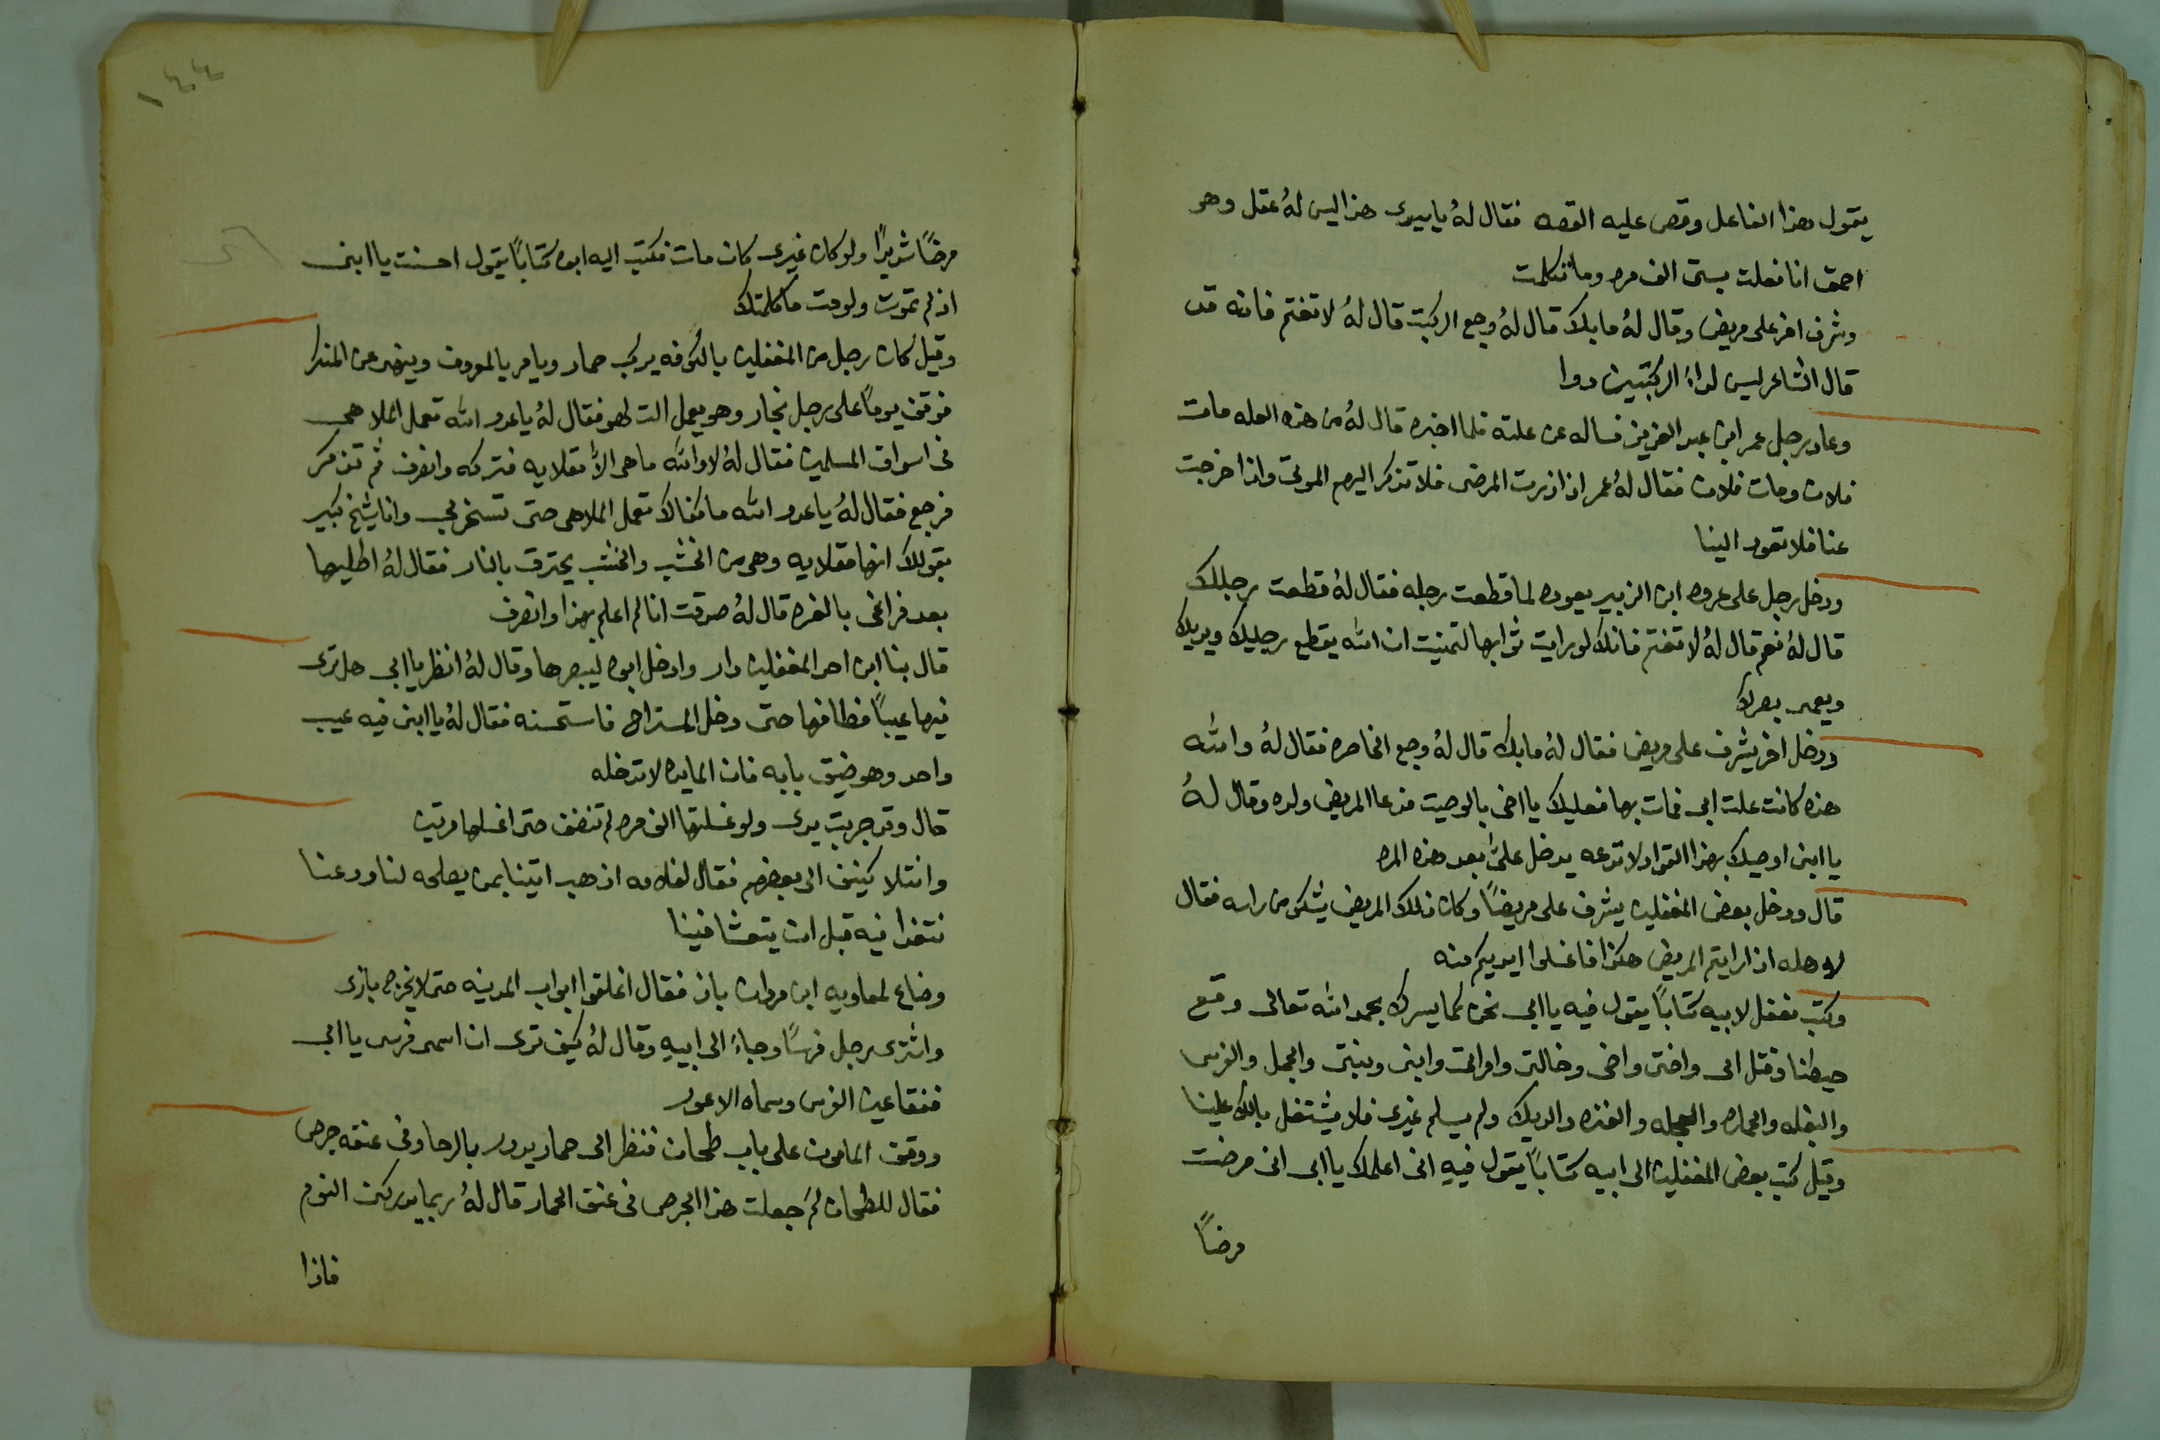 يقول لهذا الفاعل وقص عليه القصه فقال لهُ يا سيدى هذا ليس لهُ عقل وهو
احمق انا فعلت بستى الف مره وما تكلمت
وشرف اخر على مريض وقال لهُ ما بك قال لهُ وجع الركبتـ قال لهُ لا تغتم فانه قد
قال الشاعر ليس لداءُ الركبتين دوا
وعاد رجل عمر ابن عبد العزيز فساله عن علته فلما اخبره قال لهُ من هذه العله مات
فلان ومات فلان فقال لهُ عمر اذا زرت المرضى فلا تذكر اليهم الموتى واذا خرجت
عنا فلا تعود الينا
ودخل رجل على عروه ابن الزبير يعوده لما قطعت رجله فقال لهُ قطعت رجلك
قال لهُ نعم قال لهُ لا تغتم فانك لو رايت ثوابها لتمنيت ان الله يقطع رجليك ويديك
ويعمى بصرك
ودخل اخر يشرف على مريض فقال لهُ ما بك قال لهُ وجع الخاصره فقال لهُ والله
هذه كانت علت ابى فمات بها فعليك يا اخى بالوصيت فدعا المريض ولده وقال لهُ
يا ابنى اوصيك بهذا القواد لا تدعه يدخل علىَّ بعد هذه المره
قال ودخل بعض المغفلين يشرف على مريضاً وكان ذلك المريض يشكى من راسه فقال
لاهله اذا رايتم المريض هكذا فاغسلوا ايديكم منه
وكتب مغفل لابيه كتاباً يقول فيه يا ابى نحن كما يسرك بحمد الله تعالى وقع
حيطنا وقتل امى واختى واخى وخالتى وامراتى وابنى وبنتى والجمل والفرس
والبغله والحماره والعجله والعنزه والديك ولم يسلم غيرى فلا يشتغل بالك علينا
وقيل كتب بعض المغفلين الى ابيه كتاباً يقول فيهِ انى اعلمك يا ابى انى مرضت
مرضاً
١٤٤
مرضاً شديداً ولو كان غيرى كان مات فكتب اليه ابوه كتاباً يقول احسنت يا ابنى
اذ لم تموت ولو مت ما كلمتك
وقيل كان رجل من المغفلين بالكوفه يركب حمار ويامر بالمعروف وينهى عن المنكر
فوقف يوماً على رجل نجار وهو يعمل الت لهو فقال لهُ يا عدو الله تعمل الملاهى
فى اسواق المسلمين فقال لهُ لا والله ما هى الاَّ مقلايه فتركه وانصرف ثم تفكر
فرجع فقال لهُ يا عدو الله ما كفاك تعمل الملاهى حتى تسخر بى وانا شيخ كبير
بقولك انها مقلايه وهى من الخشب والخشب يحترق بالنار فقال لهُ اطليها
بعد فراغى بالغره قال لهُ صدقت انا لم اعلم بهذا وانصرف
قال بنا ابن احد المغفلين دار وادخل ابوه ليبصرها وقال لهُ انظر يا ابى هل ترى
فيها عيباً فطافها حتى دخل المستراح فاستحسنه فقال لهُ يا ابنى فيه عيب
واحد وهو ضيق بابه فان المايده لا تدخله
قال وقد جربت يدى ولو غسلتها الف مره لم تنضف حتى اغسلها مرتين
وانتلا كنيف الى بعضهم فقال لغلامه اذهب ايتينا بمن يصلحه لنا ودعنا
نتغدا فيه قبل ان يتعشا فينا
وضاع لمعاويه ابن مروان باز فقال اغلقوا ابواب المدينه حتى لا يخرج بازى
واشترى رجل فرساً وجاءَ الى ابيهِ وقال لهُ كيف ترى ان اسمى فرسى يا ابى
ففقا عين الفرس وسماه الاعور
ووقف المامون على باب طحان فنظر الى حمار يدور بالرحا وفى عنقه جرص
فقال للطحان لمَ جعلت هذا الجرص فى عنق الحمار قال لهُ ربما يدركنى النوم
فاذا